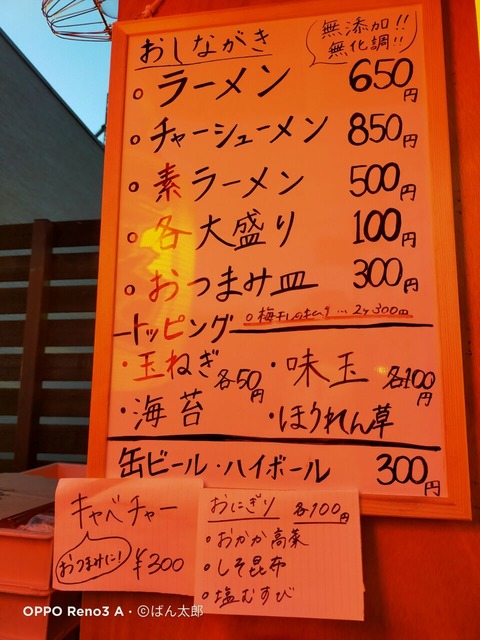 おしながき
無添加!!
無化調!!
ラーメン 650円
チャーシューメン 850円
素ラーメン 500円
各大盛り 100円
おつまみ皿 300円
トッピング
・玉ねぎ
・海苔
各50円
・味玉
・ほうれん草
各100円
缶ビール・ハイボール 300円
キャベチャー
おつまみに!
¥300
おにぎり 各100円
・おかか高菜
・しそ昆布
・塩むすび
OPPO Reno3 A・©ばん太郎